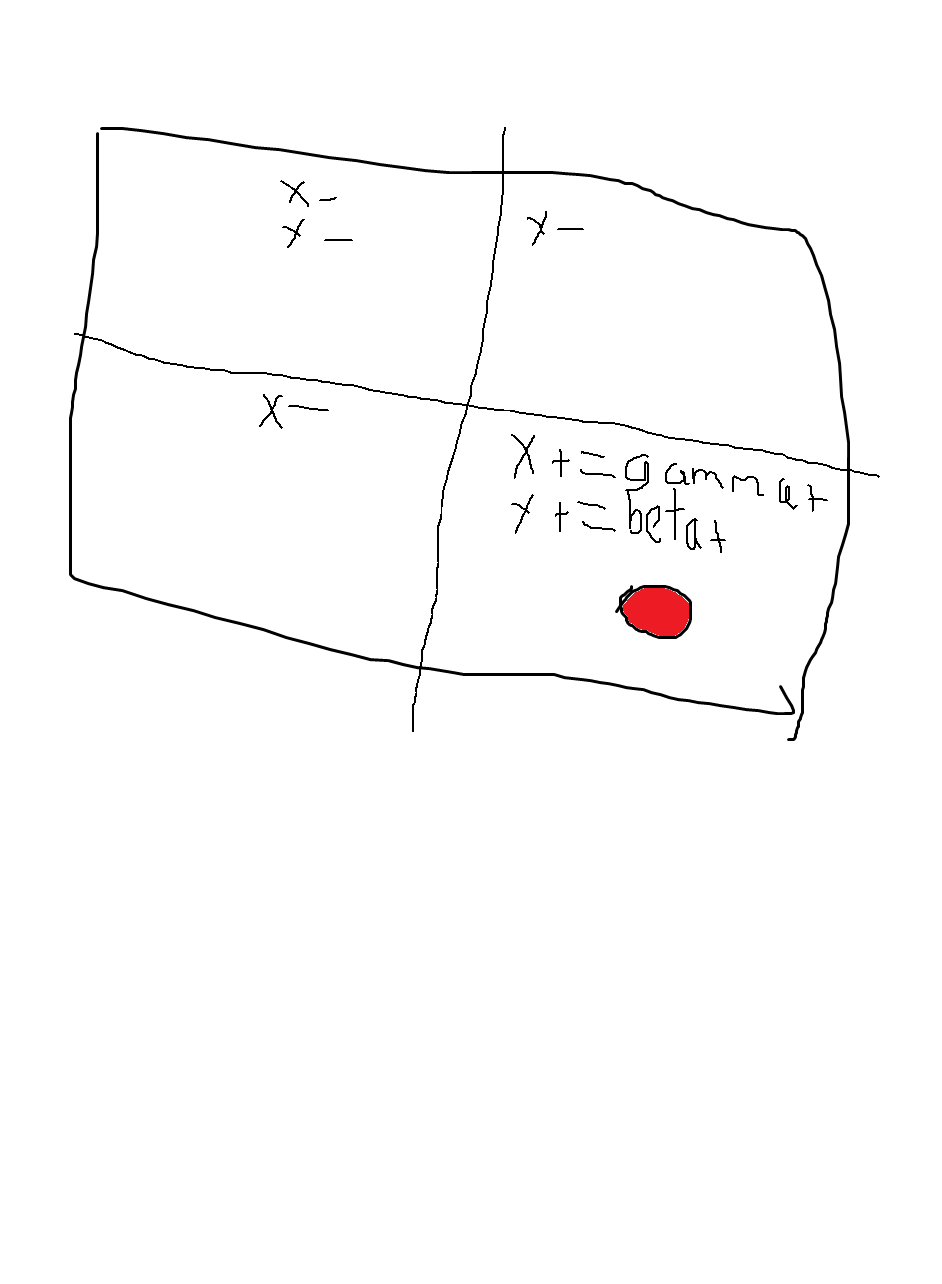 X -
Y -
Y -
X -
X += gamma+
Y += beta+